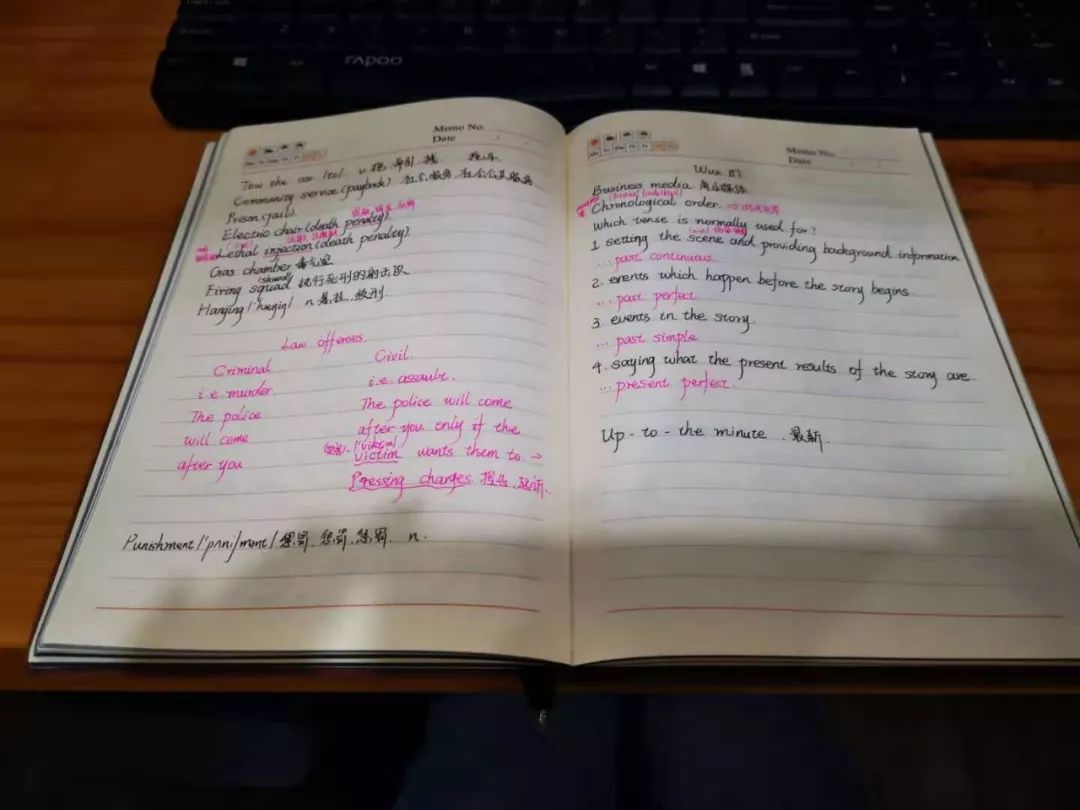 rapoo
Memo No.
Date
Mo Tu We Th Fr Sa Su
Tow the car /təʊ/. v. 拖 牵引 拽.
Community service (payback). 社会服务 社会公共服务
Prison (jail).
Electric chair (death penalty).
Lethal injection (death penalty)
Gas chamber 毒气室
(skwɒd)
Firing squad 执行死刑的射击队
Hanging /'hæŋiŋ/ n
Law offenses.
Criminal
i.e. murder.
The police
will come
after you
Civil.
i.e. assault.
The police will come
after you only if the
['viktim]
victim wants them to. →
Pressing charges. 控告.
Punishment /'pʌniʃmənt/ 惩罚. n.
Memo No.
Date
Mo Tu We Th Fr Sa Su
Business media 商业媒体
Chronological order. ⇒
Which tense is normally used for?
1. setting the scene and providing background information
... past continuous
2. events which happen before the story begins.
... past perfect
3. events in the story.
... past simple
4. saying what the present results of the story are.
... present perfect.
Up - to - the minute . 最新.